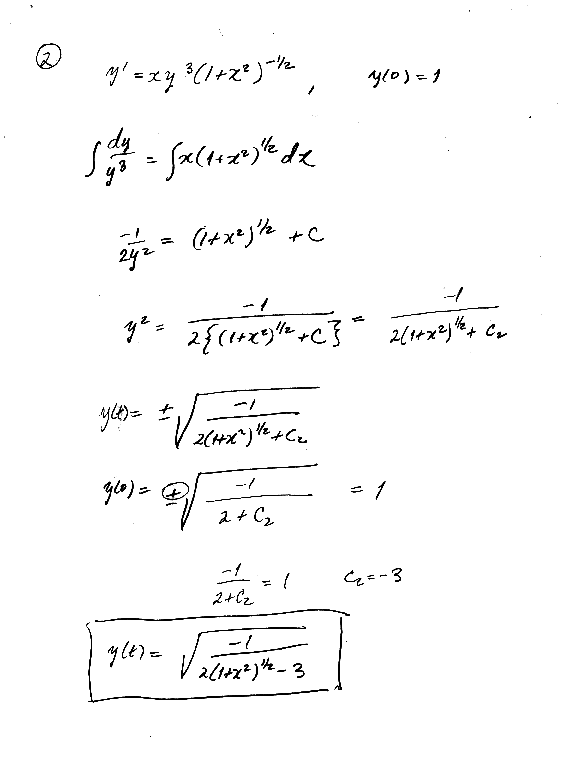 ②
y' = xy³(1+x²)^(-1/2), y(0) = 1
∫ dy/y³ = ∫ x(1+x²)^(1/2) dx
-1/(2y²) = (1+x²)^(1/2) + C
y² = -1/(2{(1+x²)^(1/2) + C}) = -1/(2(1+x²)^(1/2) + C₂)
y(t) = ±√(-1/(2(1+x²)^(1/2) + C₂))
y(0) = ±√(-1/(2 + C₂)) = 1
-1/(2+C₂) = 1 C₂ = -3
y(t) = √(-1/(2(1+x²)^(1/2) - 3))